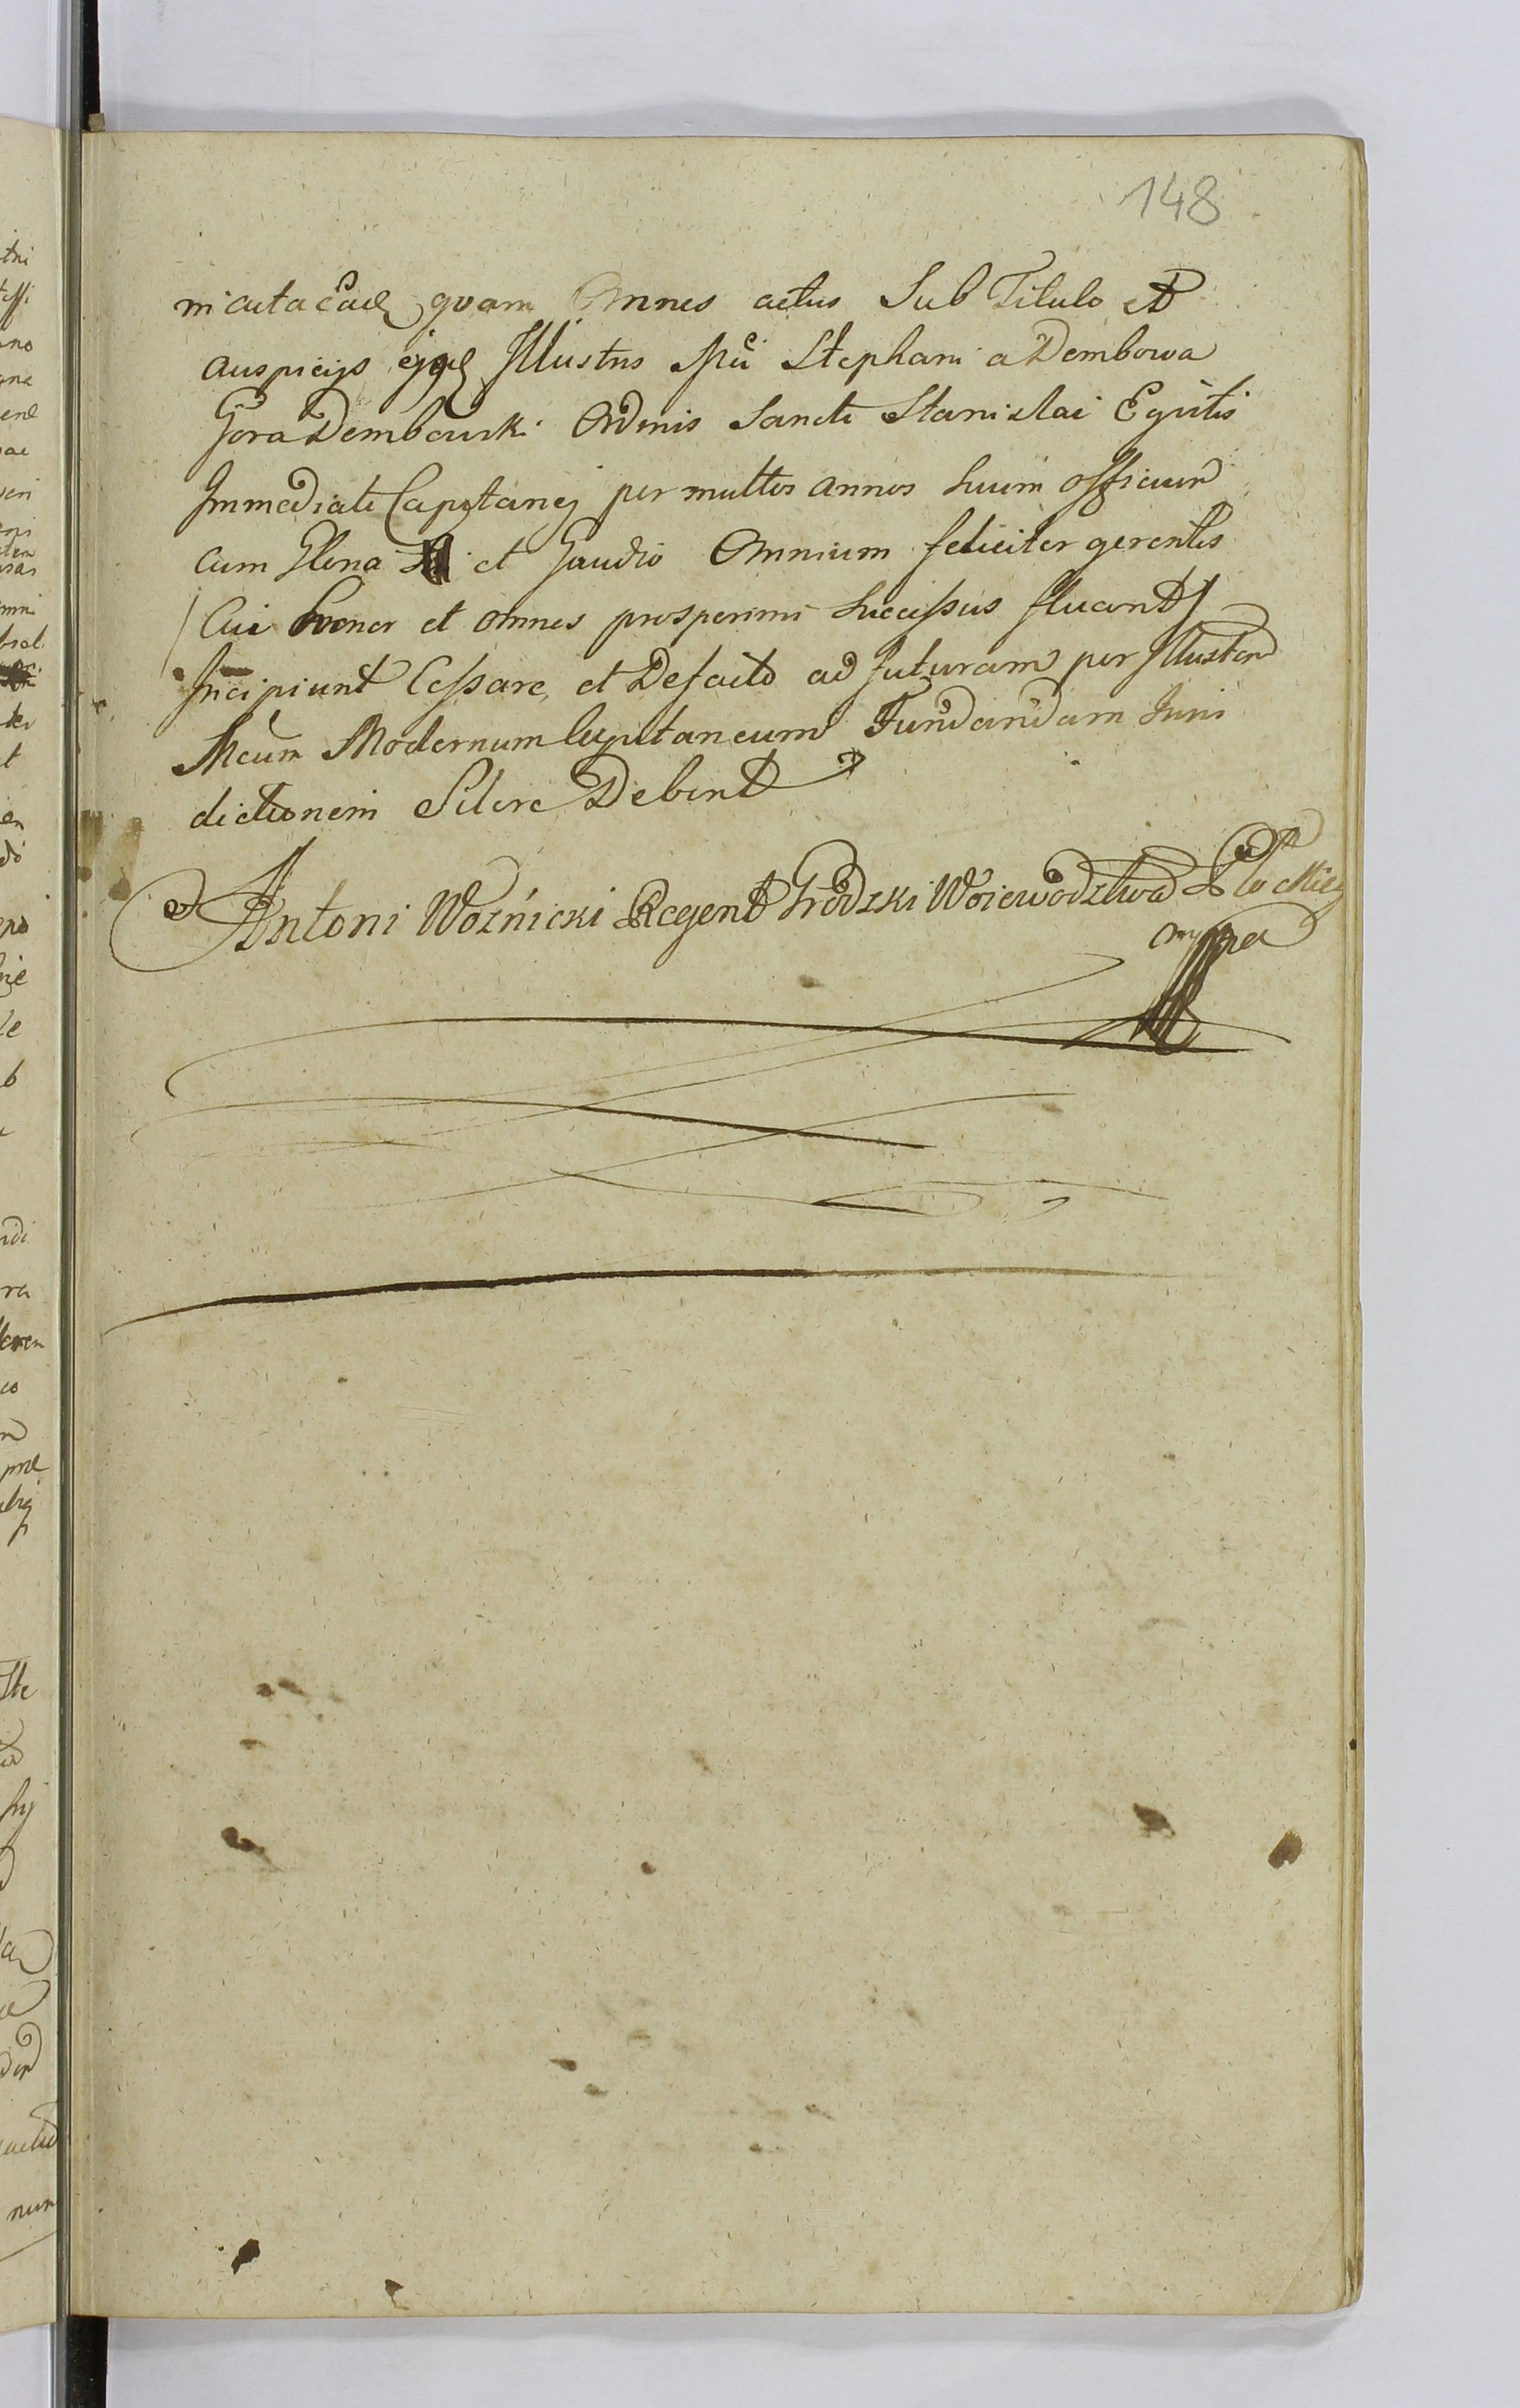 148
quam Omnes actus Sub Titulo et
auspicijs Illustris Stephani a Dembowa
Gora Dembowski Ordinis Sancti Stanislai Equitis
Immediati Capitanej per multos annos Suum officium
cum Gloria et Gaudio Omnium feliciter gerentis
/Cui honor et omnes prosperimi Successus fluant/
Incipiunt Cessare, et Defacto ad futuram per Illustrem
Modernum Capitaneum Fundandam Juris
dictionem Silere Debent
Antoni Woźnicki Regent Grodzki Woiewodztwa Płockieg
mppa